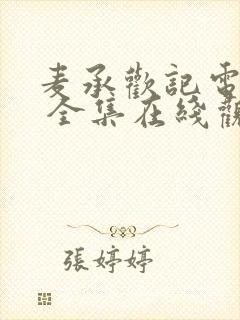 麦承歡記電
全集在綫觀
張婷婷